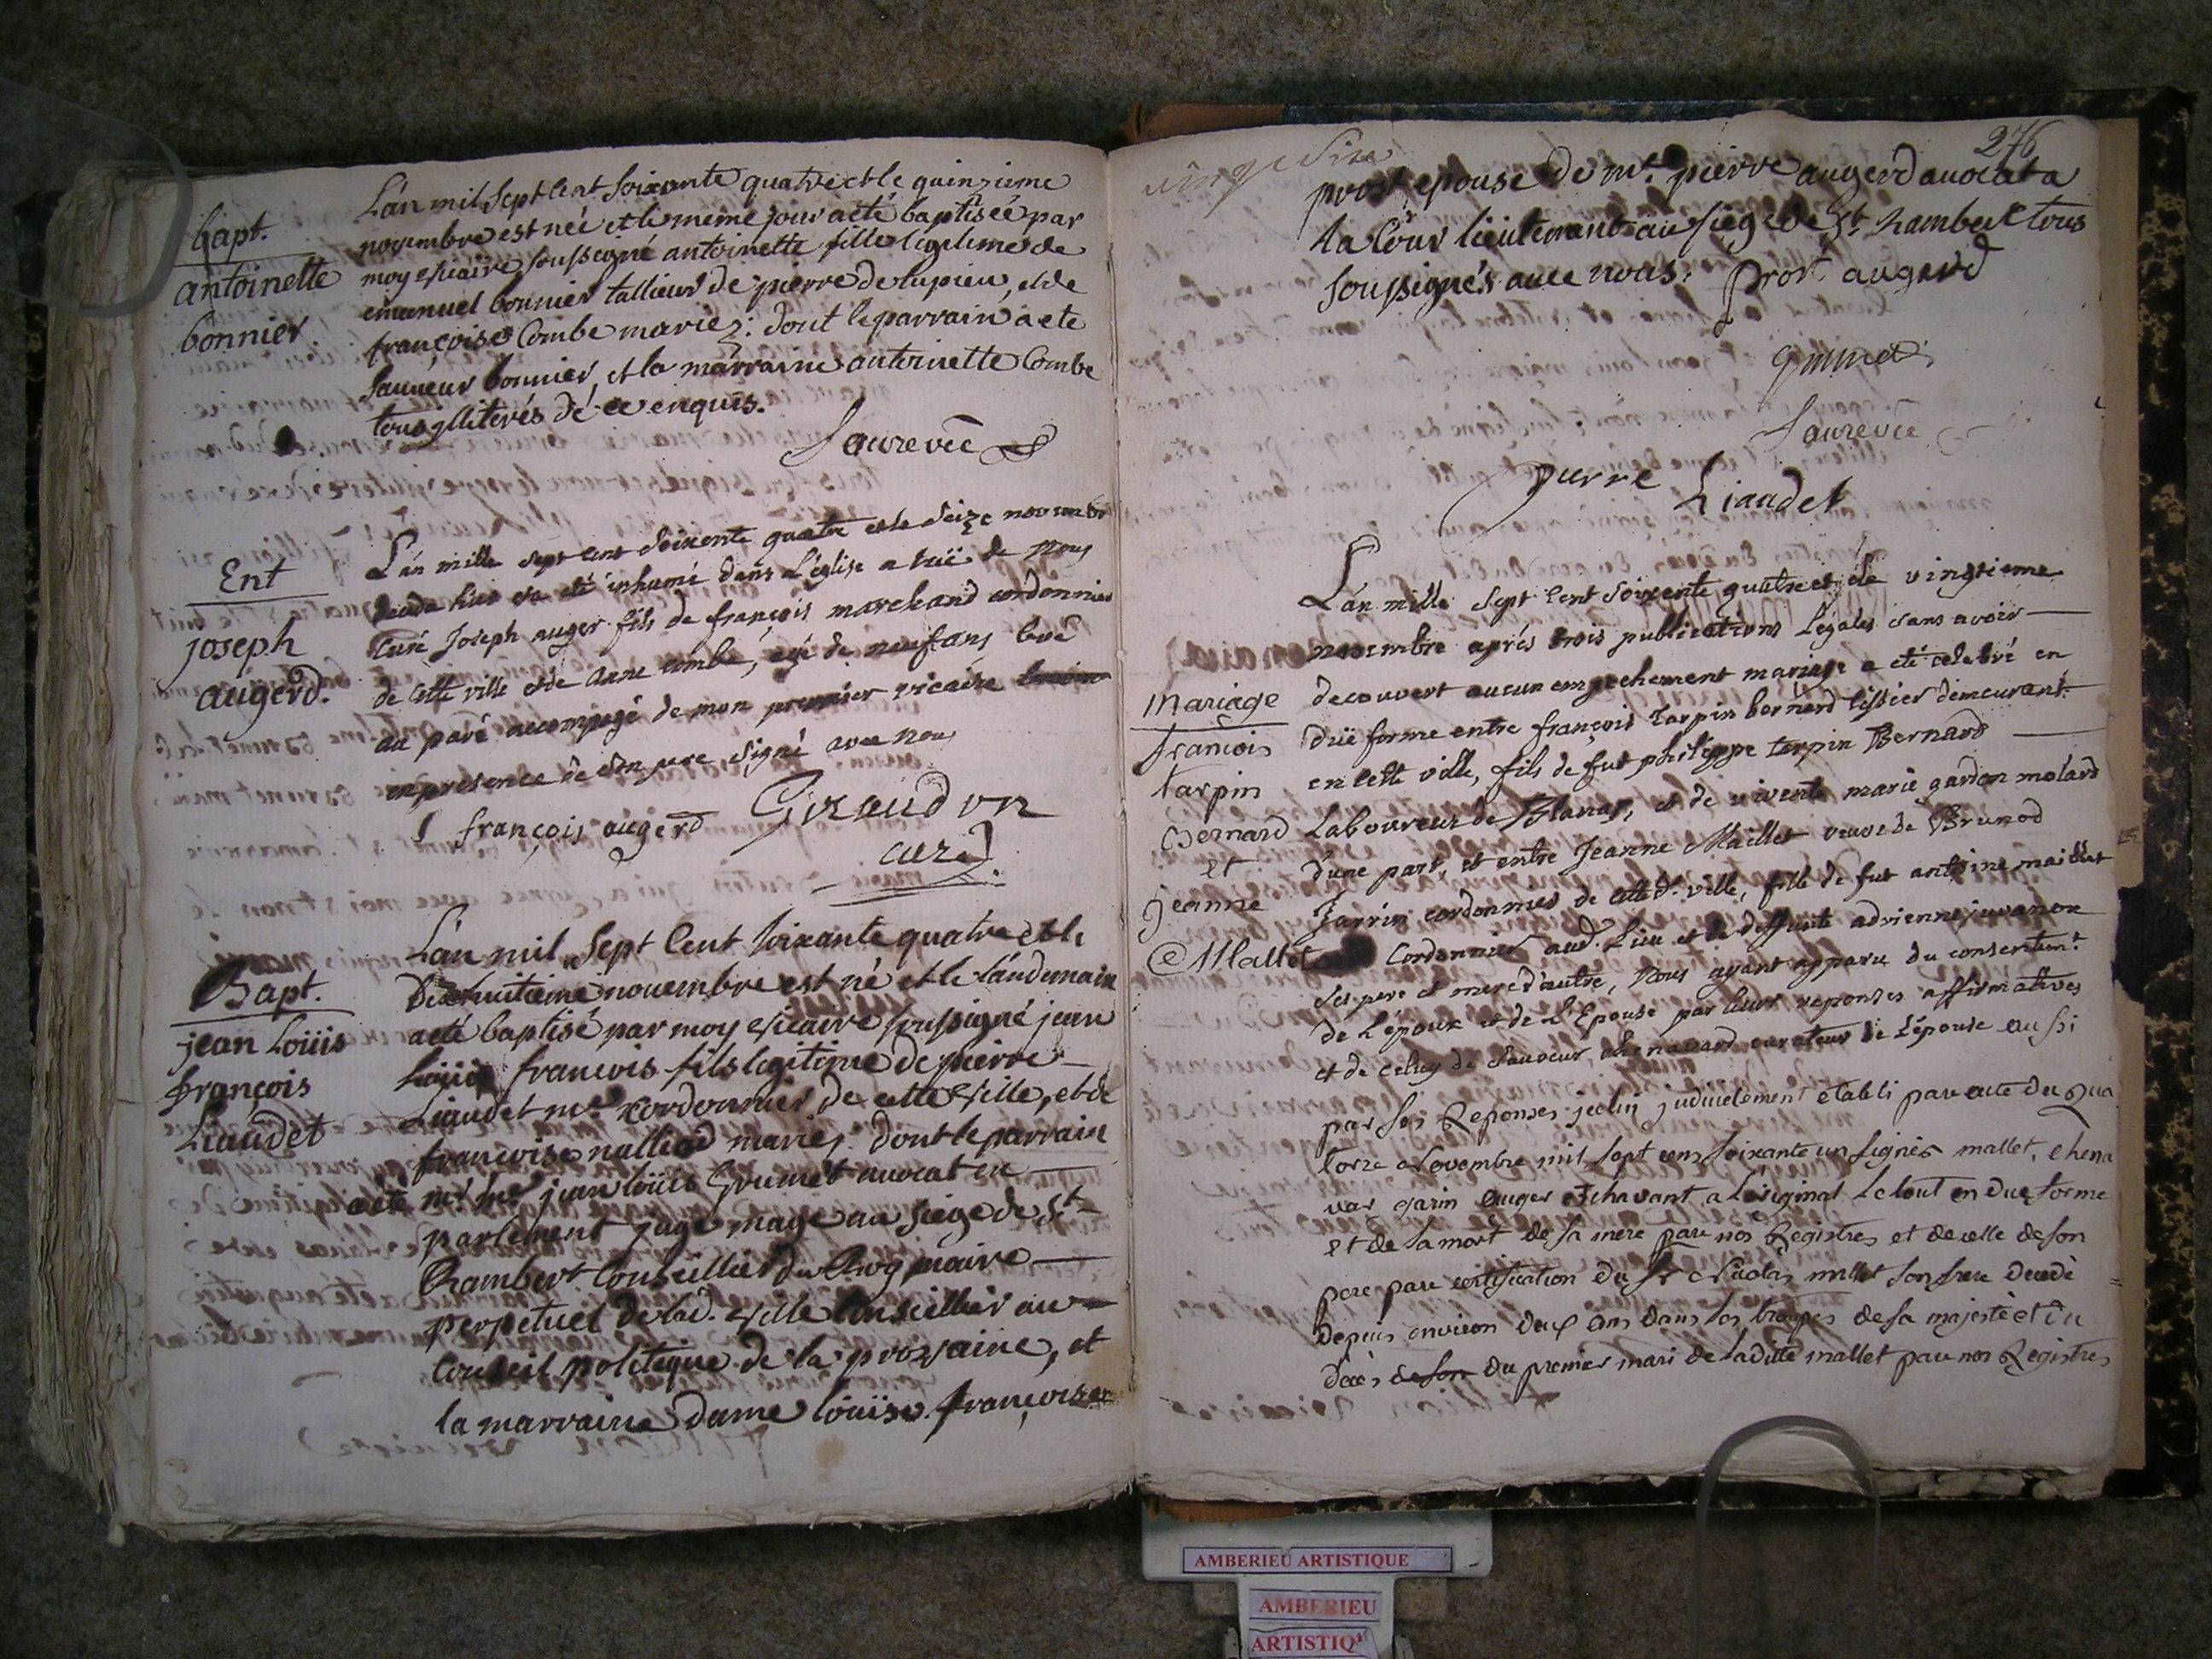 bapt.
antoinette
bonnier
L'an mil sept cent soixante quatre et le quinzieme
novembre est née et le meme jour a eté baptisée par
moy vicaire soussigné antoinette fille legitime de
emanuel bonnier tallieur de pierre de lupieu, et de
françoise Combe mariez: dont le parrain a ete
sauveur bonnier, et la marraine antoinette Combe
tous illiterés de ce enquis.
Ent
joseph
augerd.
L'an mille sept cent soixente quatre et le seize novembre
decede hier et a eté inhumé dans L'eglise a raü de nous
Curé Joseph auger fils de françois marchand cordonnier
de cette ville et de anne combe, agé de neuf ans
au paré accompagé de mon premier vicaire
en presence de son pere signé avec nous
françois augerd
Giraudon
curé
Bapt.
jean Loüis
françois
Liaudet
L'an mil sept Cent soixante quatre et le
Dixhuitieme novembre est né et le landemain
a eté baptisé par moy vicaire soussigné jean
Loüis francois fils legitime de pierre
Liaudet me. cordonnier de cette ville, et de
francoise nalliod mariez dont le parrain
a eté mr. me jean loüis Grumet avocat en
parlement juge mage au siege de St
Rambert Conseillier du Roy maire
perpetuel de lad. ville Conseillier au
Conseil politique de la province, et
la marraine dame loüise françoise
276
prost epouse de mr. pierre augerd avocat a
la Cour lieutenant au siege de St. Rambert tous
soussignés avec nous: prost augerd
grumet
pierre Liaudet
mariage
françois
tarpin
Bernard
et
Jeanne
Mallet
L'an mille sept cent soixente quatre et le vingtieme
novembre aprés trois publications Legales sans avoir
decouvert aucun empechement mariage a eté celebré en
düe forme entre françois Tarpin bernard tissier demeurant
en cette ville, fils de fut philippe tarpin Bernard
Laboureur de Blanas, et de vivente marie gardon molard
d'une part, et entre Jeanne Maillet veuve de Brunod
Jarrin cordonnier de cetted. ville, fille de fut antoine maillet
Cordonnier aud. Lieu et de deffunte adrienne juvanon
ses pere et mere d'autre, Nous ayant apparu du consentemt
de L'époux et de L'Epouse par leurs reponses affirmatives
et de celuy de sauveur chenavard curateur de L'épouse aussi
par ses Reponses jcelui judicielement etabli par acte du Qua
torze Novembre mil sept cens soixante un signés mallet, chena
var garin auger et chavant a L'original Le tout en due forme
et de la mort de sa mere par nos Registres et de celle de son
pere par certification du Sr Nicolas mallet son frere decedé
depuis environ deux ans dans les troupes de sa majesté et du
deces de son du premier mari de ladite mallet par nos Registres
AMBERIEU ARTISTIQUE
AMBERIEU
ARTISTIQ